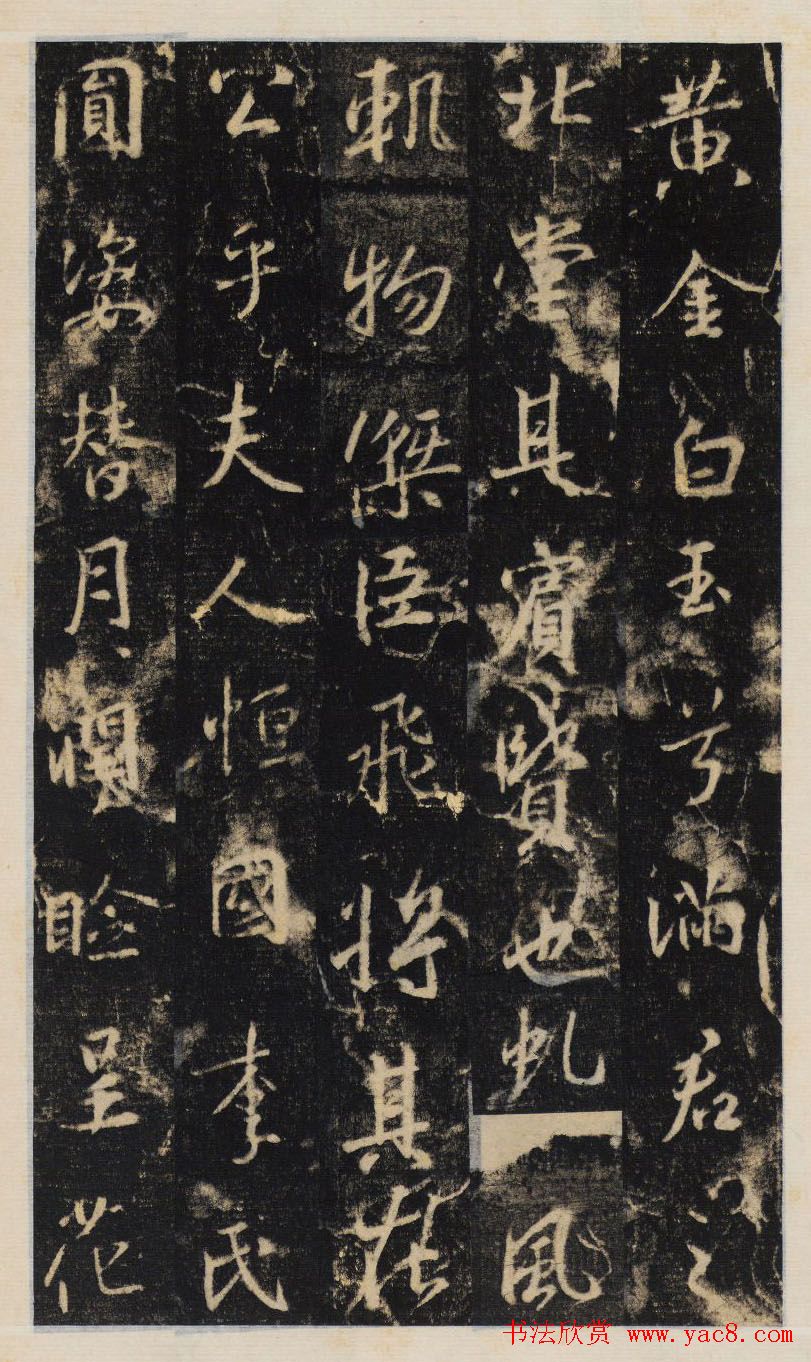 黄金白玉兮滿君之
北堂其賓賢也虬風
軌物傑臣飛將其在
公乎夫人恒國李氏
圓姿替月潤瞼呈花
书法欣赏 www.yac8.com